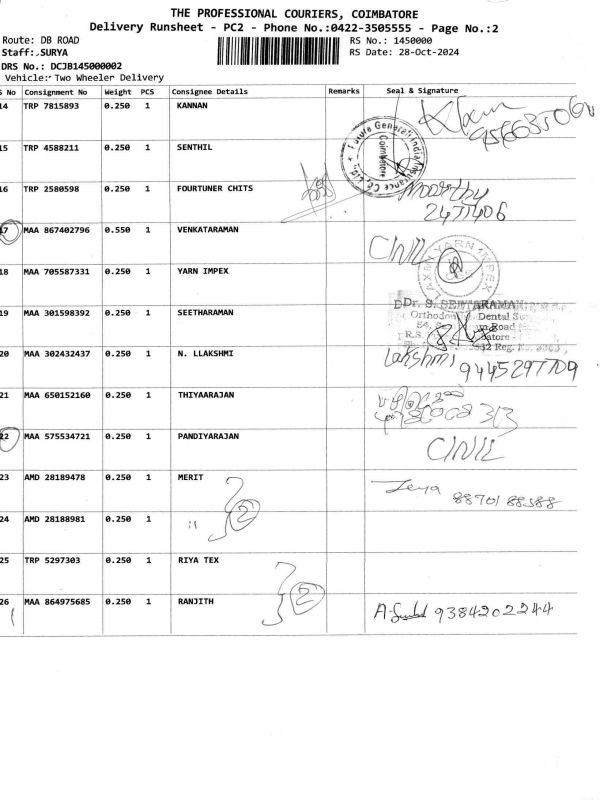 THE PROFESSIONAL COURIERS, COIMBATORE
Delivery Runsheet - PC2 - Phone No.:0422-3505555 - Page No.:2
Route: DB ROAD RS No.: 1450000
Staff: SURYA RS Date: 28-Oct-2024
DRS No.: DCJB145000002
Vehicle: Two Wheeler Delivery
S No Consignment No Weight PCS Consignee Details Remarks Seal & Signature
14 TRP 7815893 0.250 1 KANNAN
15 TRP 4588211 0.250 1 SENTHIL Future Generali India Insurance Co. Ltd. Coimbatore
16 TRP 2580598 0.250 1 FOURTUNER CHITS Moorthy
2471406
17 MAA 867402796 0.550 1 VENKATARAMAN C/N/L
18 MAA 705587331 0.250 1 YARN IMPEX YARN IMPEX
19 MAA 301598392 0.250 1 SEETHARAMAN Dr. S. SEETARAMAN
Dental
Road
20 MAA 302432437 0.250 1 N. LLAKSHMI Lakshmi
9445297709
21 MAA 650152160 0.250 1 THIYAARAJAN
22 MAA 575534721 0.250 1 PANDIYARAJAN C/N/L
23 AMD 28189478 0.250 1 MERIT 2 Jeya 8870188588
24 AMD 28188981 0.250 1 "
25 TRP 5297303 0.250 1 RIYA TEX 2
26 MAA 864975685 0.250 1 RANJITH 9384202244